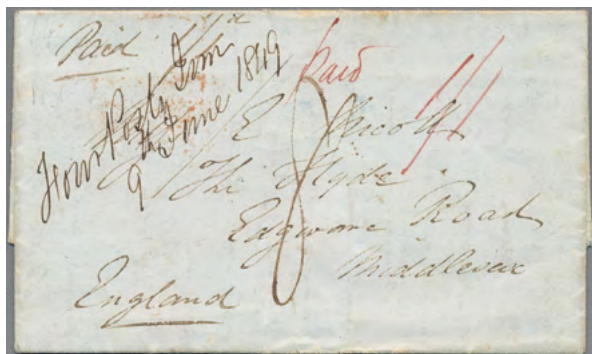 Paid
Paid
Four Posts Inn
9th June 1849
E Nicoll
The Hyde
Edgware Road
Middlesex
England